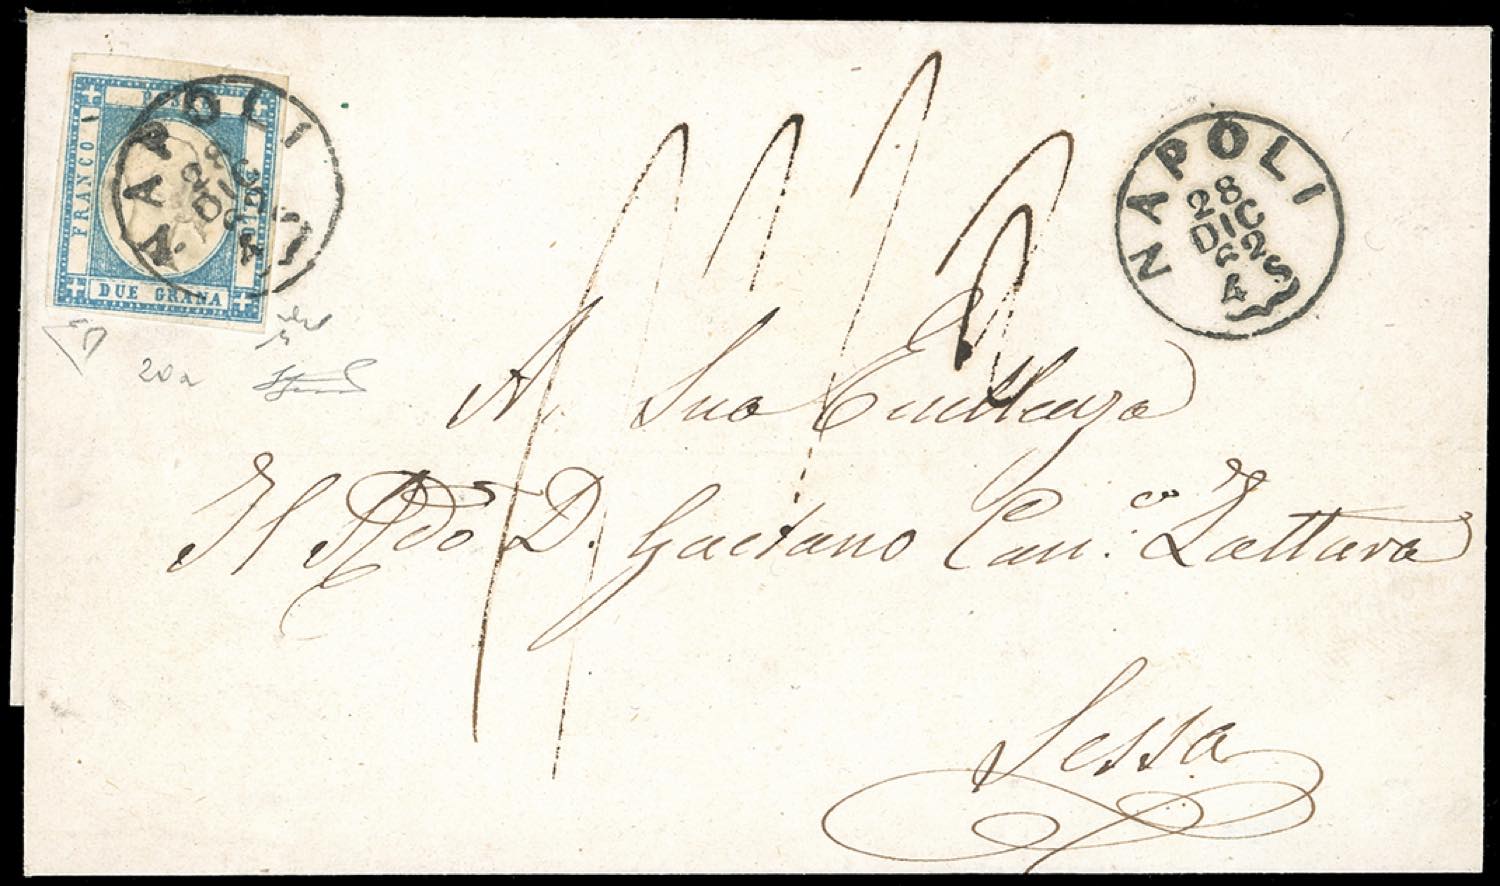 FRANCO BOLLO
DUE GRANA
NAPOLI
28
DIC
62
4S
NAPOLI
28
DIC
62
4S
20a
A. Sua Eccellenza
Il D. Gaetano Can.co Zattara
Sessa